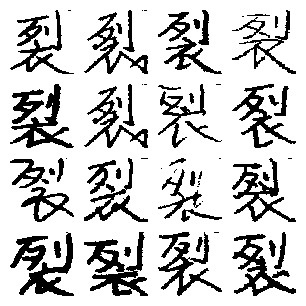 裂裂裂裂
裂裂裂裂
裂裂裂裂
裂裂裂裂